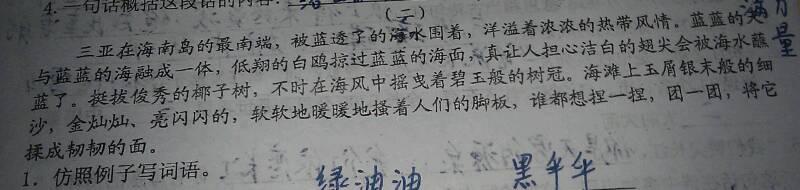 4. 一句话概括这段话的内容:
(二)
三亚在海南岛的最南端,被蓝透了的海水围着,洋溢着浓浓的热带风情。蓝蓝的天
与蓝蓝的海融成一体,低翔的白鸥掠过蓝蓝的海面,真让人担心洁白的翅尖会被海水蘸
蓝了。挺拔俊秀的椰子树,不时在海风中摇曳着碧玉般的树冠。海滩上玉屑银末般的细
沙,金灿灿、亮闪闪的,软软地暖暖地搔着人们的脚板,谁都想捏一捏,团一团,将它
揉成韧韧的面。
1. 仿照例子写词语。
绿油油 黑乎乎